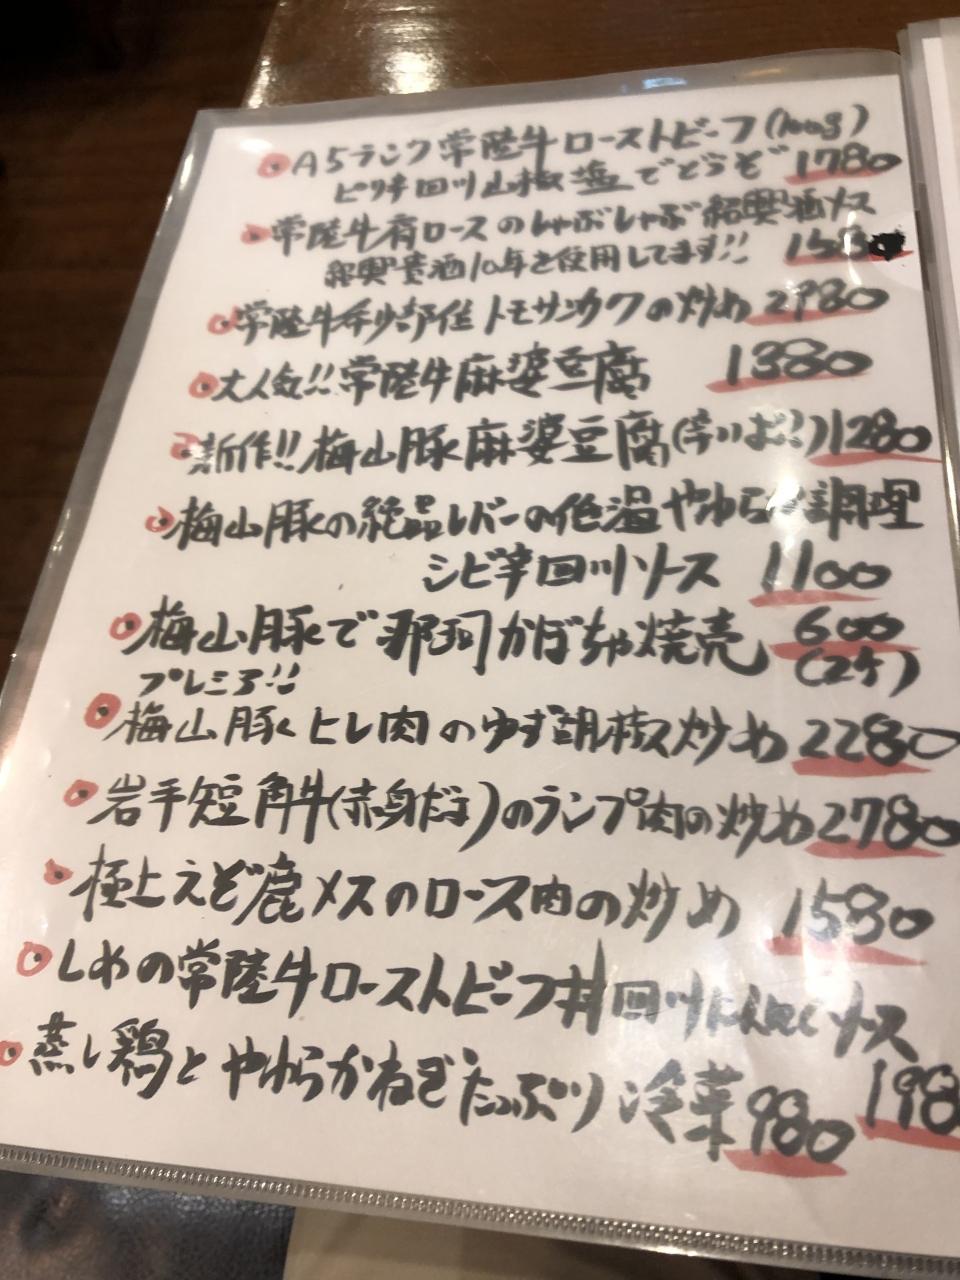 A5ランク常陸牛ローストビーフ(100g)
ピリ辛四川山椒塩でどうぞ 1780
常陸牛肩ロースのしゃぶしゃぶ紹興酒ソース
紹興貴酒10年を使用してます!! 158
常陸牛希少部位トモサンカクの炒め 2980
大人気!!常陸牛麻婆豆腐 1380
新作!!梅山豚麻婆豆腐(辛いよ!!) 1280
梅山豚の絶品レバーの低温やわらか調理
シビ辛四川ソース 1100
梅山豚で那珂かぼちゃ焼売 600
(2ケ)
プレミア!!
梅山豚ヒレ肉のゆず胡椒炒め 2280
岩手短角牛(赤身だよ)のランプ肉の炒め 2780
極上えぞ鹿メスのロース肉の炒め 1580
しめの常陸牛ローストビーフ丼四川にんにくソース
198
蒸し鶏とやわらかねぎたっぷり冷菜 980